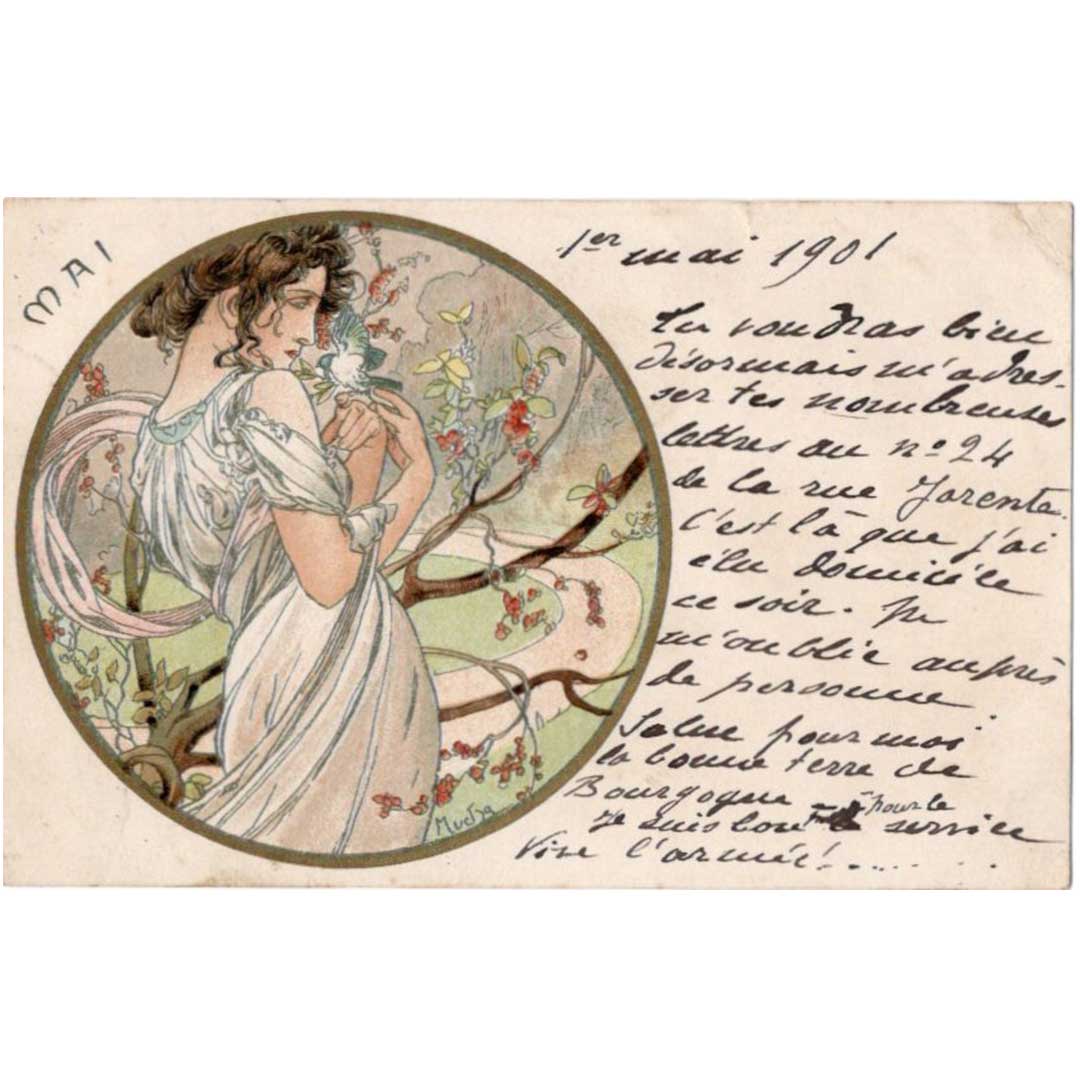 MAI
1er mai 1901
Tu voudras bien
désormais m'adres-
ser tes nombreuses
lettres au nº 24
de la rue Jarente.
C'est là que j'ai
élu domicile
ce soir. Ne
m'oublie auprès
de personne
Salue pour moi
la bonne terre de
Bourgogne
Je suis bon pour le service
Vive l'armée!......
Mucha